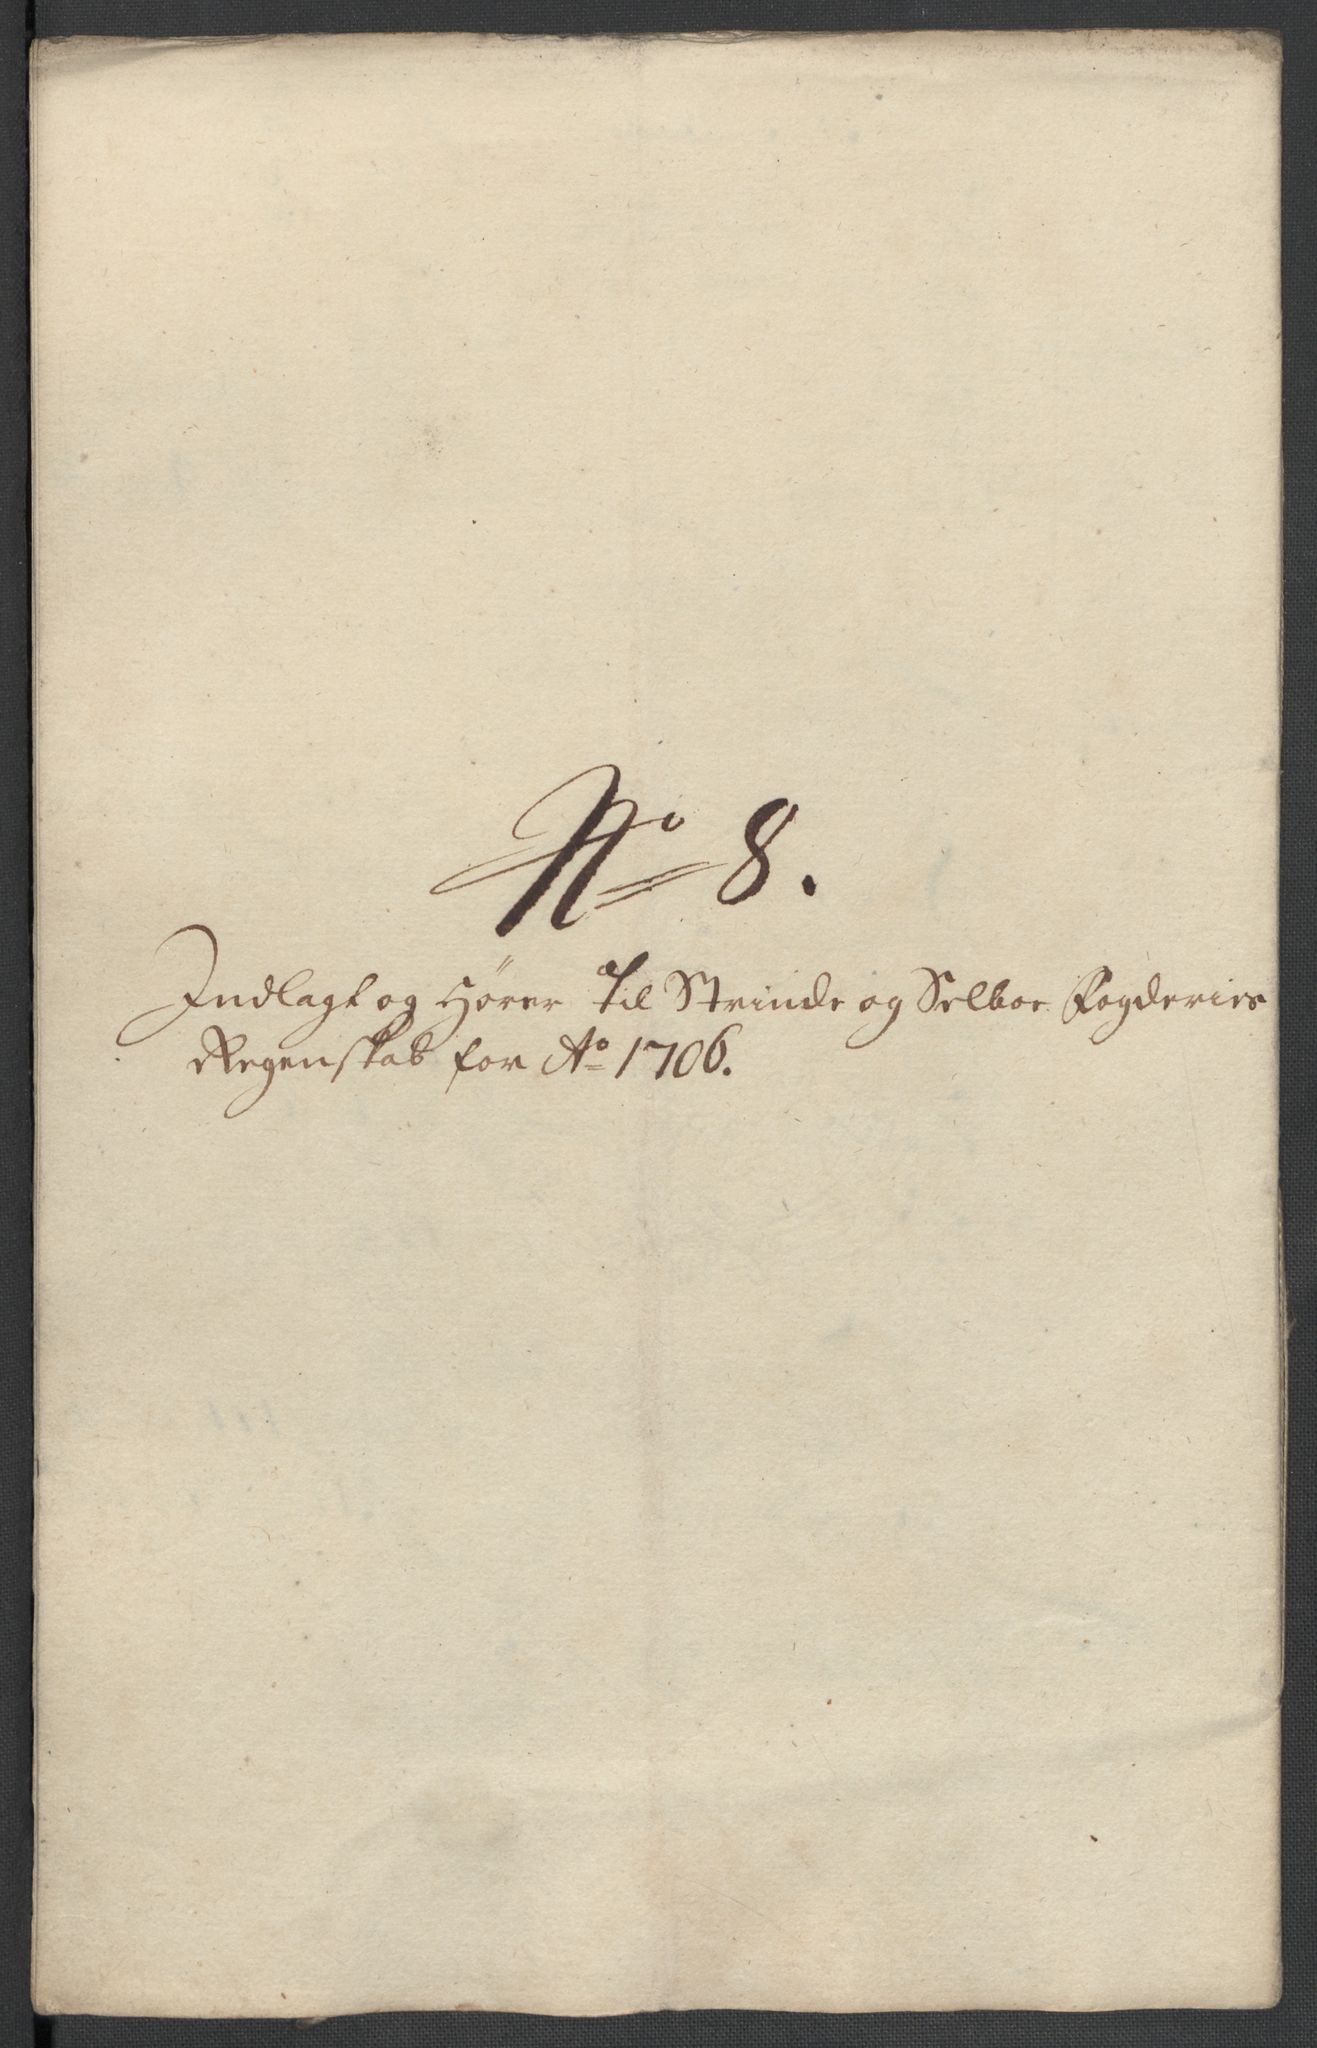 No 8.
Indlagt og Hörer Til Strinde og Selboe Fogderies
Regenskab for Ao 1706.